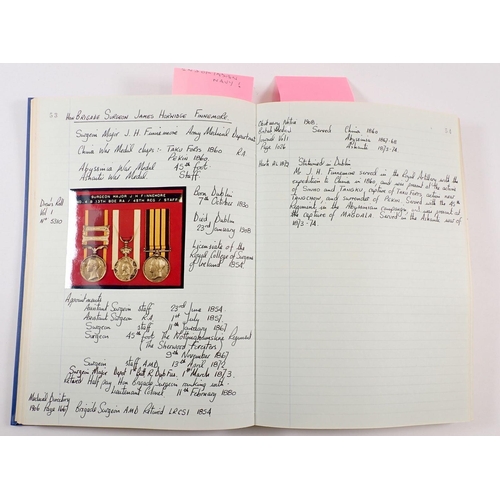 53
Hon Brigade Surgeon James Horwidge Finnemore.
Surgeon Major J.H. Finnemore Army Medical Department
China War Medal clasps:- Taku Forts 1860 R.A.
Pekin 1860.
Abyssinia War Medal 45th foot
Ashanti War Medal Staff
Drew's Roll
Vol 1
No 5310
SURGEON MAJOR J H FINNEMORE
13TH BDE RA / 45TH REG / STAFF
Born Dublin
7th October 1830
Died Dublin
23rd January 1909
Licenciate of the
Royal College of Surgeons
of Ireland 1854.
Appointments
Assistant Surgeon Staff 23rd June 1854.
Assistant Surgeon R.A. 1st July 1857.
Surgeon Staff 11th January 1867
Surgeon 45th foot The Nottinghamshire Regiment
(The Sherwood Foresters)
9th November 1867
Surgeon Staff AMD 13th April 1872
Surgeon Major Dept 1st March 1873.
Retired Half pay Hon Brigade Surgeon ranking with
Lieutenant Colonel 11th February 1880
Medical Directory
1906 Page 1667 Brigade Surgeon AMD Retired LRCSI 1854
Obituary Notice BMJ.
British Medical Served China 1860
Journal Vol 1 Abyssinia 1867-68
Page 1026 Ashanti 1873-74
Statements in Dublin
Mr J.H. Finnemore served in the Royal Artillery with the
expedition to China in 1860 and was present at the action
of Sinho and Tangku capture of Taku Forts, action near
Tangchow, and surrender of Pekin. Served with the 45th
Regiment in the Abyssinian campaign and was present at
the capture of Magdala. Served in the Ashanti war of
1873-74